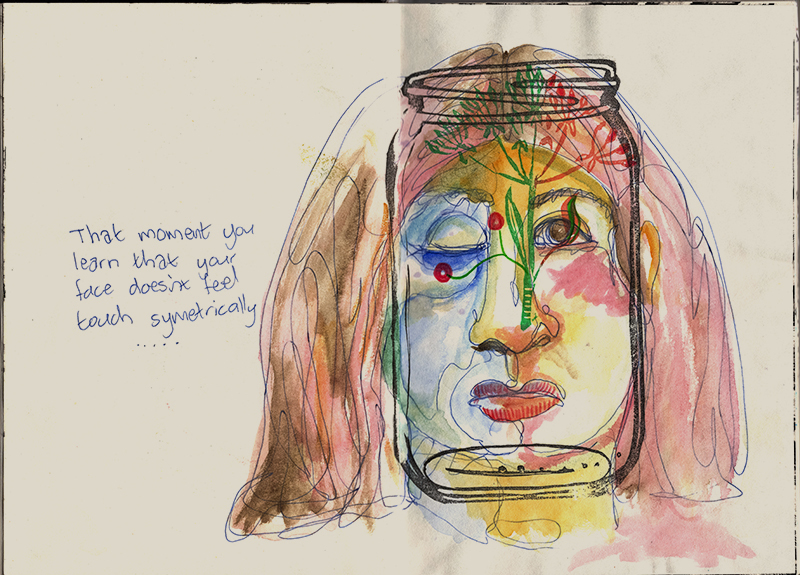 That moment you
learn that your
face doesn't feel
touch symetrically
.....